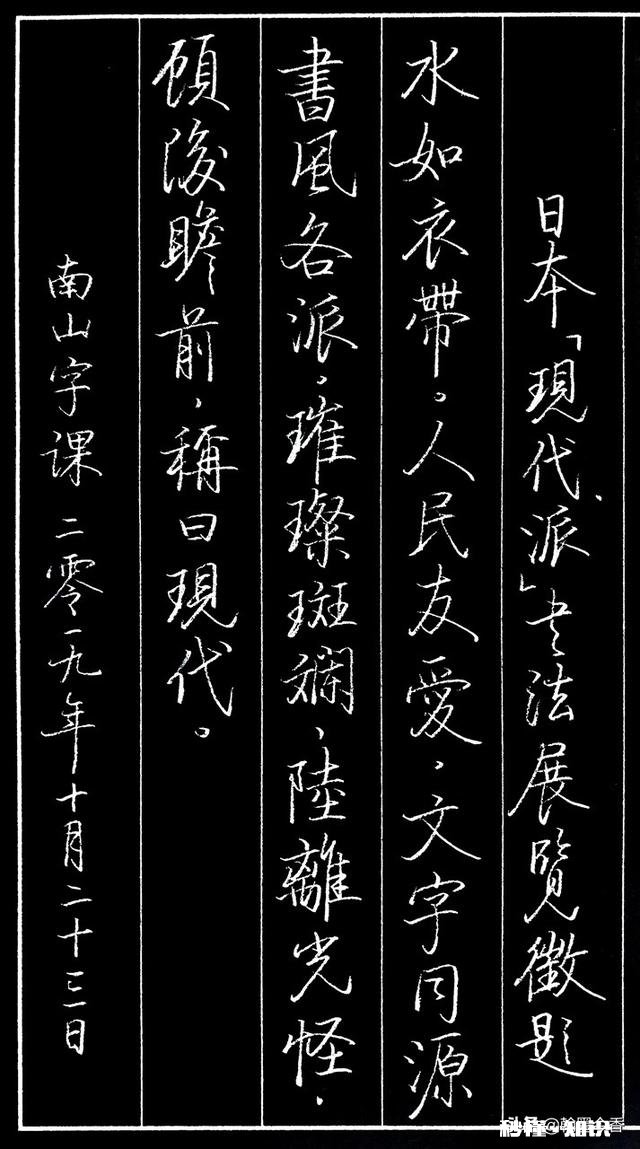 日本「現代派」书法展覽徵題
水如衣帶。人民友愛，文字同源
書風各派，璀璨斑斓、陸離光怪，
顧後瞻前，稱曰現代。
南山字课 二零一九年十月二十三日